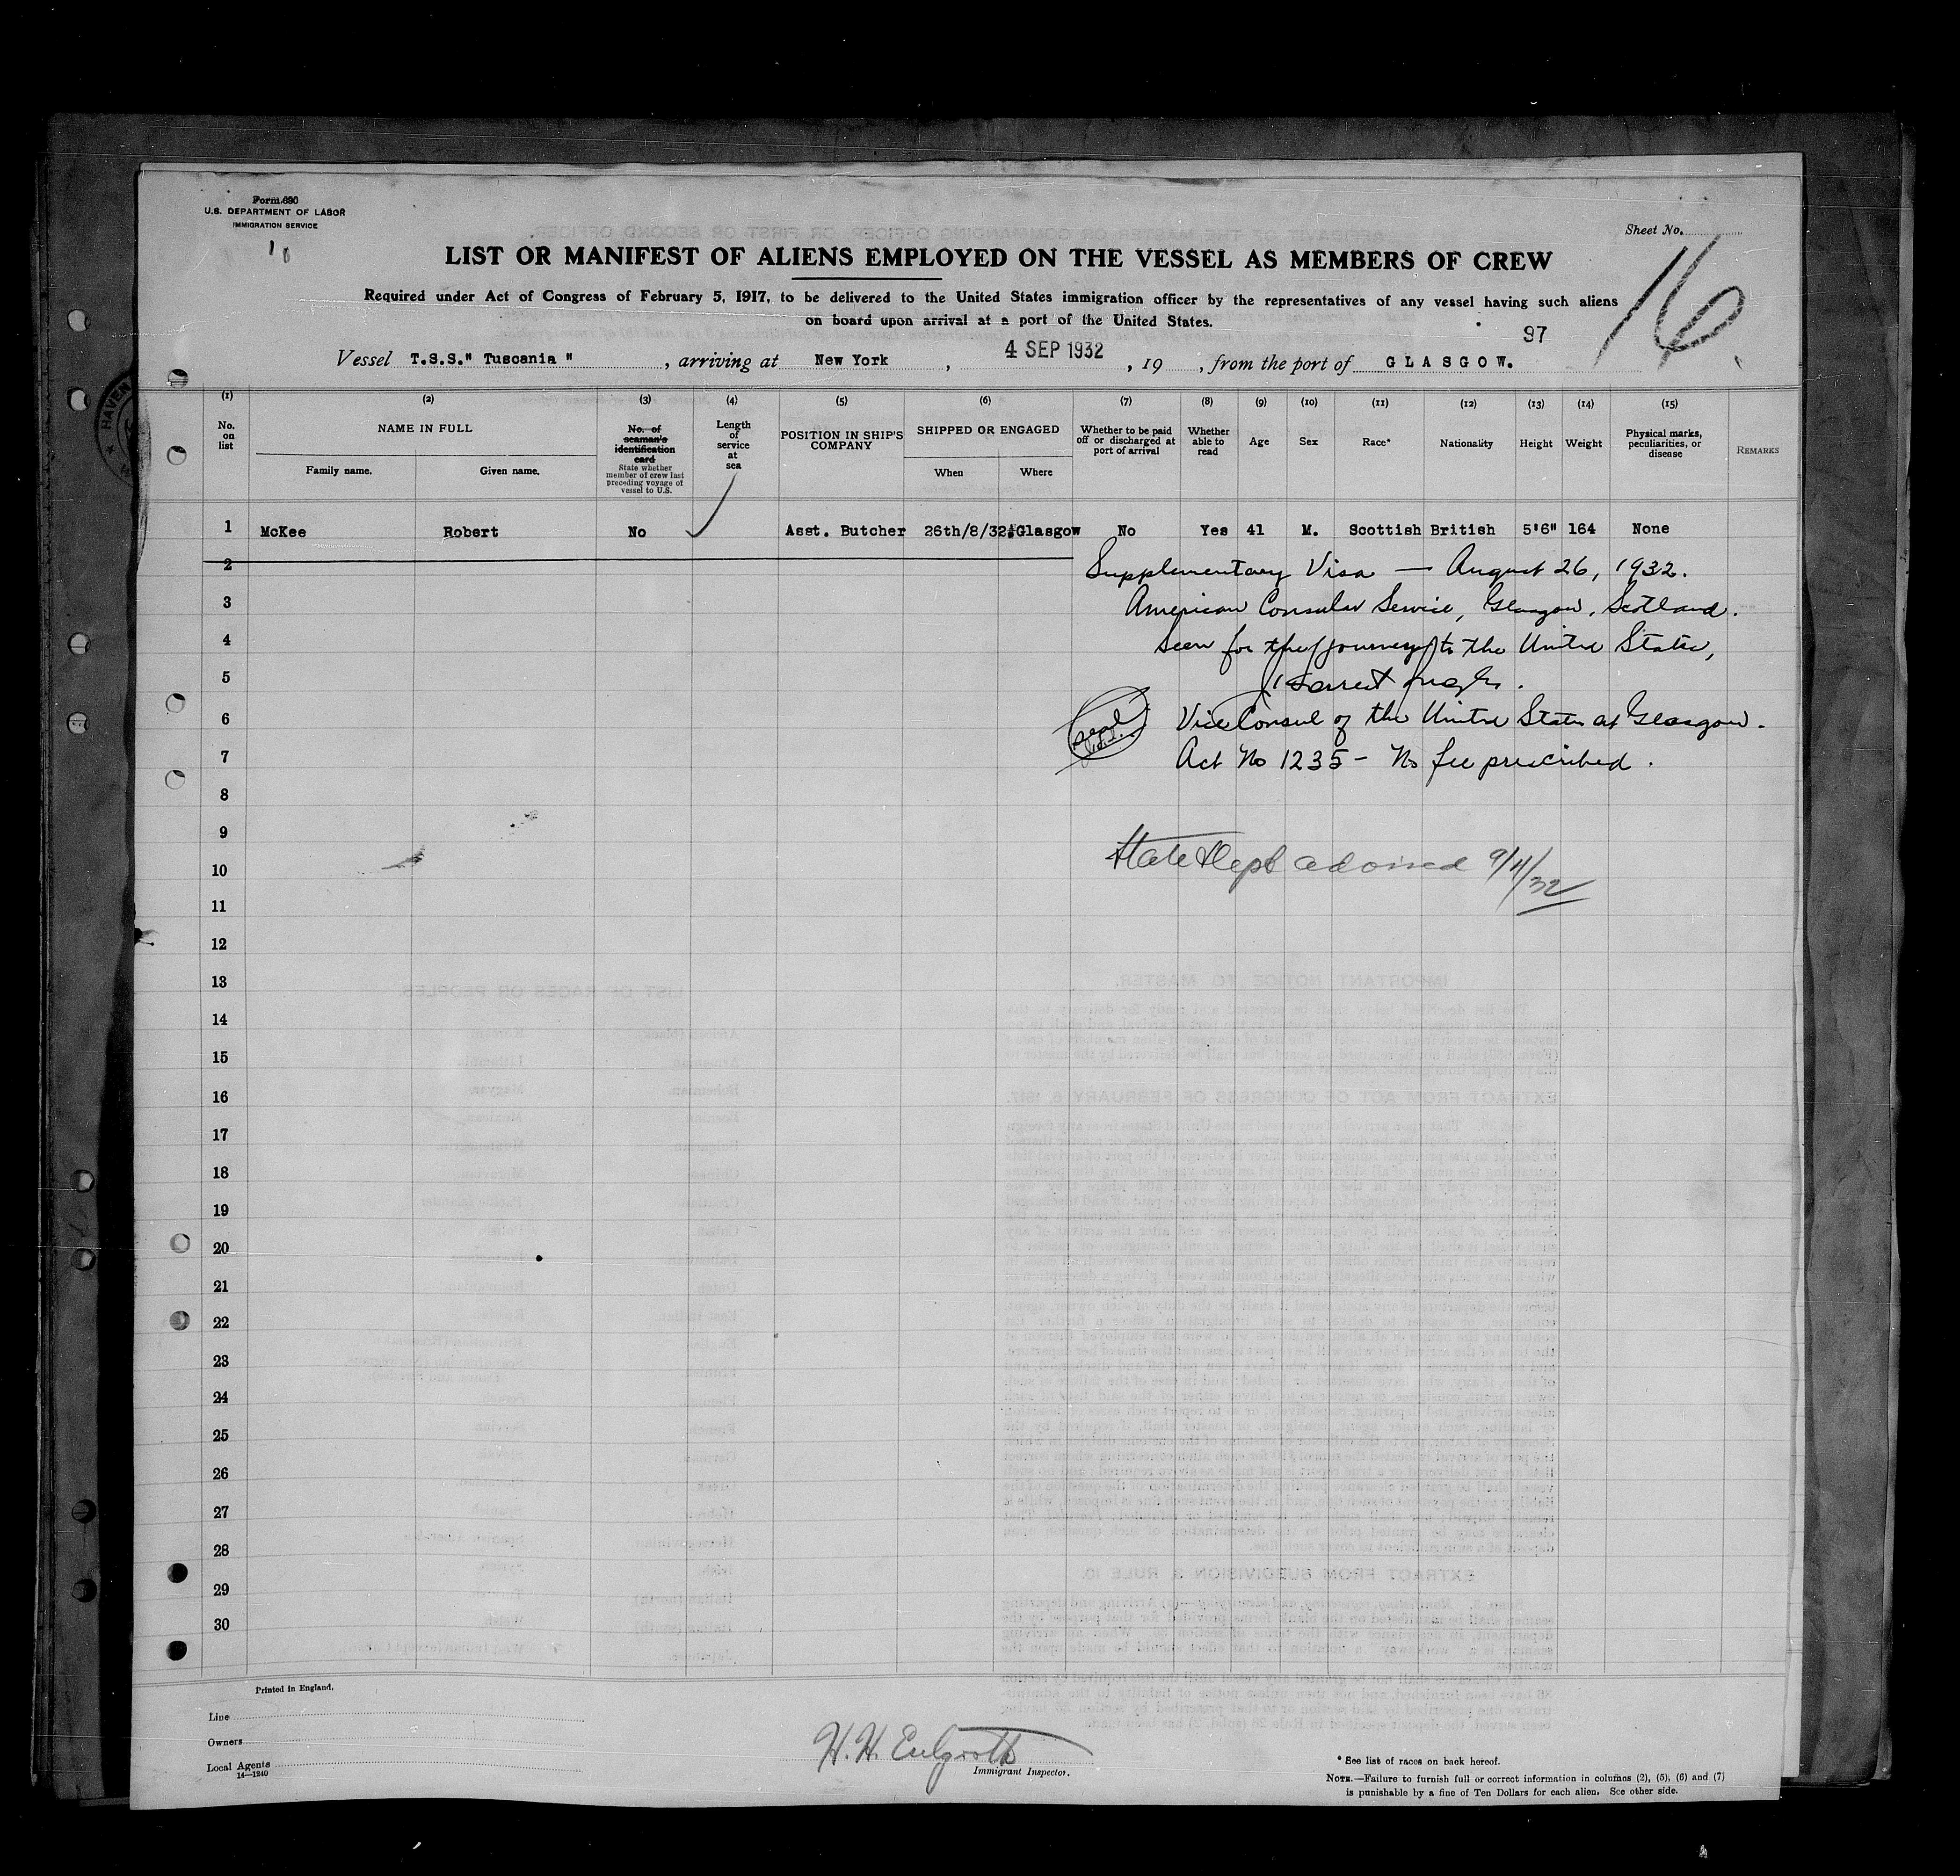 Form 680
U.S. DEPARTMENT OF LABOR
IMMIGRATION SERVICE
Sheet No.
16
LIST OR MANIFEST OF ALIENS EMPLOYED ON THE VESSEL AS MEMBERS OF CREW
Required under Act of Congress of February 5, 1917, to be delivered to the United States immigration officer by the representatives of any vessel having such aliens
on board upon arrival at a port of the United States.
97
Vessel T.S.S." Tuscania ", arriving at New York, 4 SEP 1932, 19 , from the port of GLASGOW.
(1) (2) (3) (4) (5) (6) (7) (8) (9) (10) (11) (12) (13) (14) (15)
No. on list
NAME IN FULL
Family name. Given name.
No. of seaman's identification card
State whether member of crew last preceding voyage of vessel to U.S.
Length of service at sea
POSITION IN SHIP'S COMPANY
SHIPPED OR ENGAGED
When Where
Whether to be paid off or discharged at port of arrival
Whether able to read
Age
Sex
Race*
Nationality
Height
Weight
Physical marks, peculiarities, or disease
REMARKS
1 McKee Robert No Asst. Butcher 26th/8/32 Glasgow No Yes 41 M. Scottish British 5'6" 164 None
2 Supplementary Visa — August 26, 1932.
3 American Consular Service, Glasgow, Scotland.
4 Seen for the journey to the United States,
5
6 Seal Vice Consul of the United States at Glasgow.
7 Act No 1235 - No fee prescribed.
8
9
10 State Dept advised 9/4/32
11
12
13
14
15
16
17
18
19
20
21
22
23
24
25
26
27
28
29
30
Printed in England.
Line
Owners
Local Agents
14—1240
H. H.
Immigrant Inspector.
* See list of races on back hereof.
NOTE.—Failure to furnish full or correct information in columns (2), (5), (6) and (7)
is punishable by a fine of Ten Dollars for each alien. See other side.